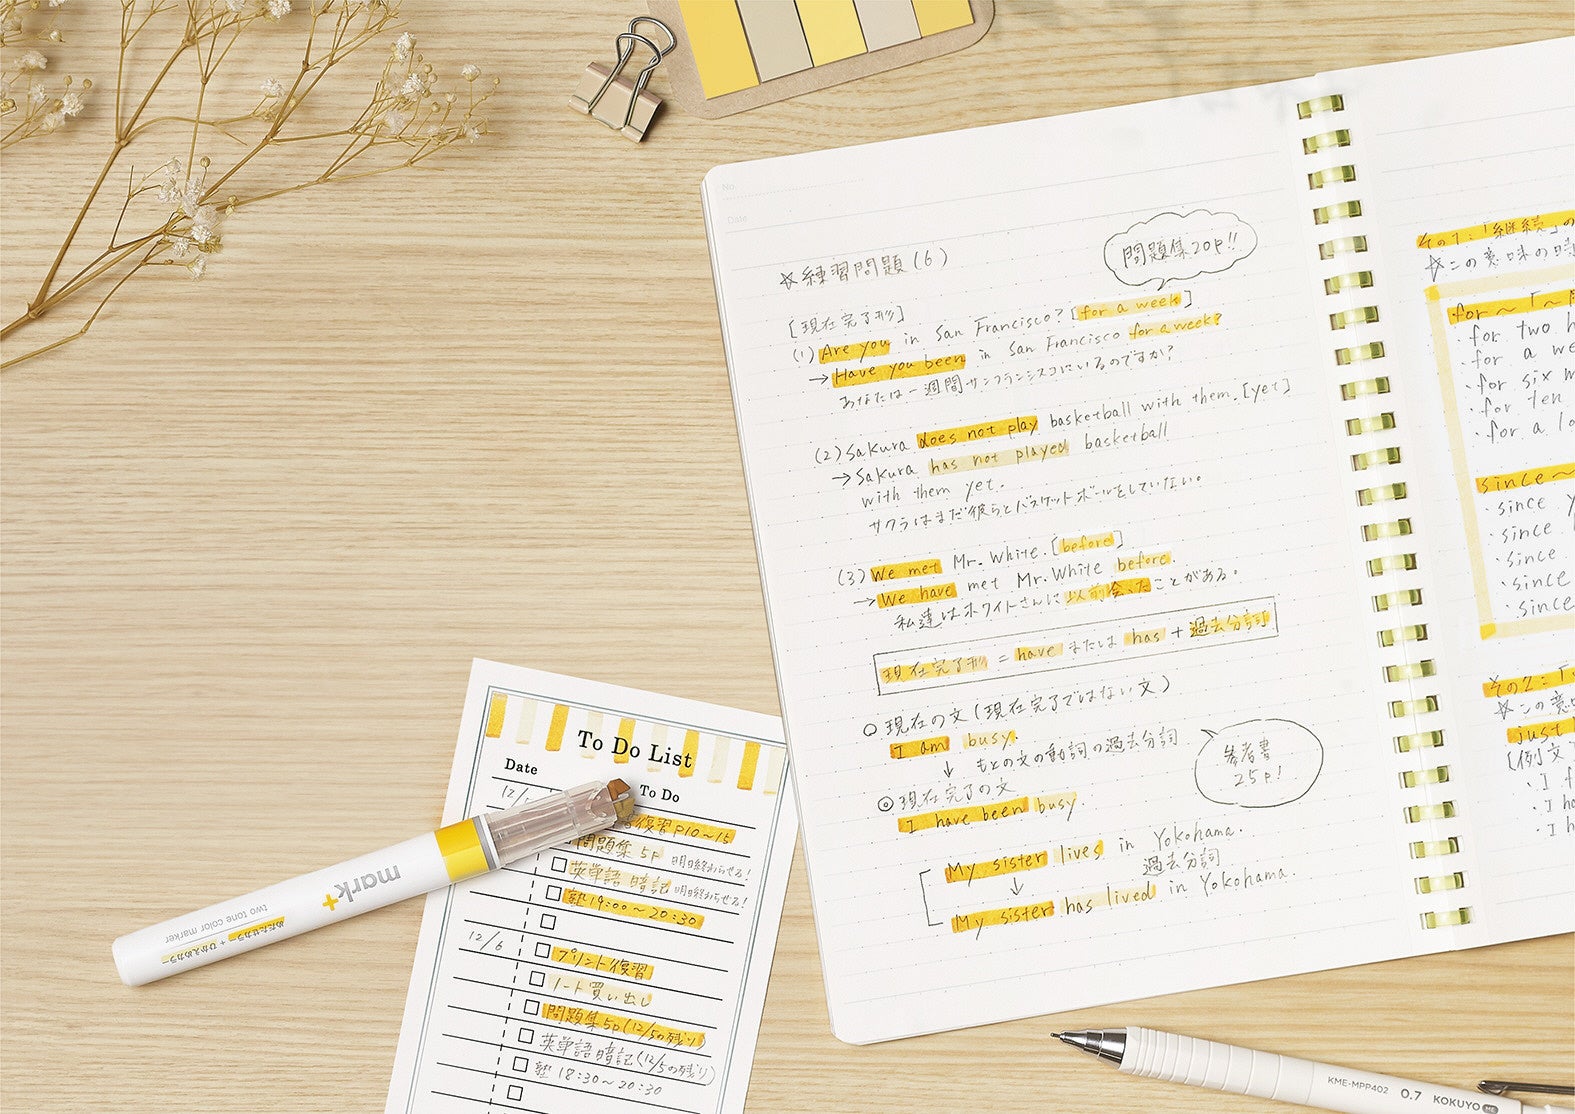 No.
Date
☆練習問題(6)
問題集20p!!
[現在完了形]
(1) Are you in San Francisco? [for a week]
→Have you been in San Francisco for a week?
あなたは一週間サンフランシスコにいるのですか?
(2) Sakura does not play basketball with them. [yet]
→Sakura has not played basketball
with them yet.
サクラはまだ彼らとバスケットボールをしていない。
(3) We met Mr. White. [before]
→We have met Mr. White before.
私達はホワイトさんに以前会ったことがある。
現在完了形 = have または has + 過去分詞
○現在の文(現在完了ではない文)
I am busy.
↓ もとの文の動詞の過去分詞
参考書
25p!
◎現在完了の文
I have been busy.
My sister lives in Yokohama.
↓ 過去分詞
My sister has lived in Yokohama.
その1:「継続」の
☆この意味の時
for〜「〜
・for two
・for a we
・for six m
・for ten
・for a lo
since〜
・since
・since
・since
・since
・since
その2:「
☆この意
just
[例文
・I
・I ha
・I h
To Do List
Date To Do
12/
復習 P10〜15
問題集 5p 明日終わらせる!
英単語 暗記 明日終わらせる!
塾 19:00〜20:30
12/6
プリント復習
ノート買い出し
問題集 5p (12/5の残り)
英単語暗記 (12/5の残り)
塾 18:30〜20:30
mark+
two tone color marker
めだたせカラー + ひかえめカラー
KME-MPP402 0.7 KOKUYO ME